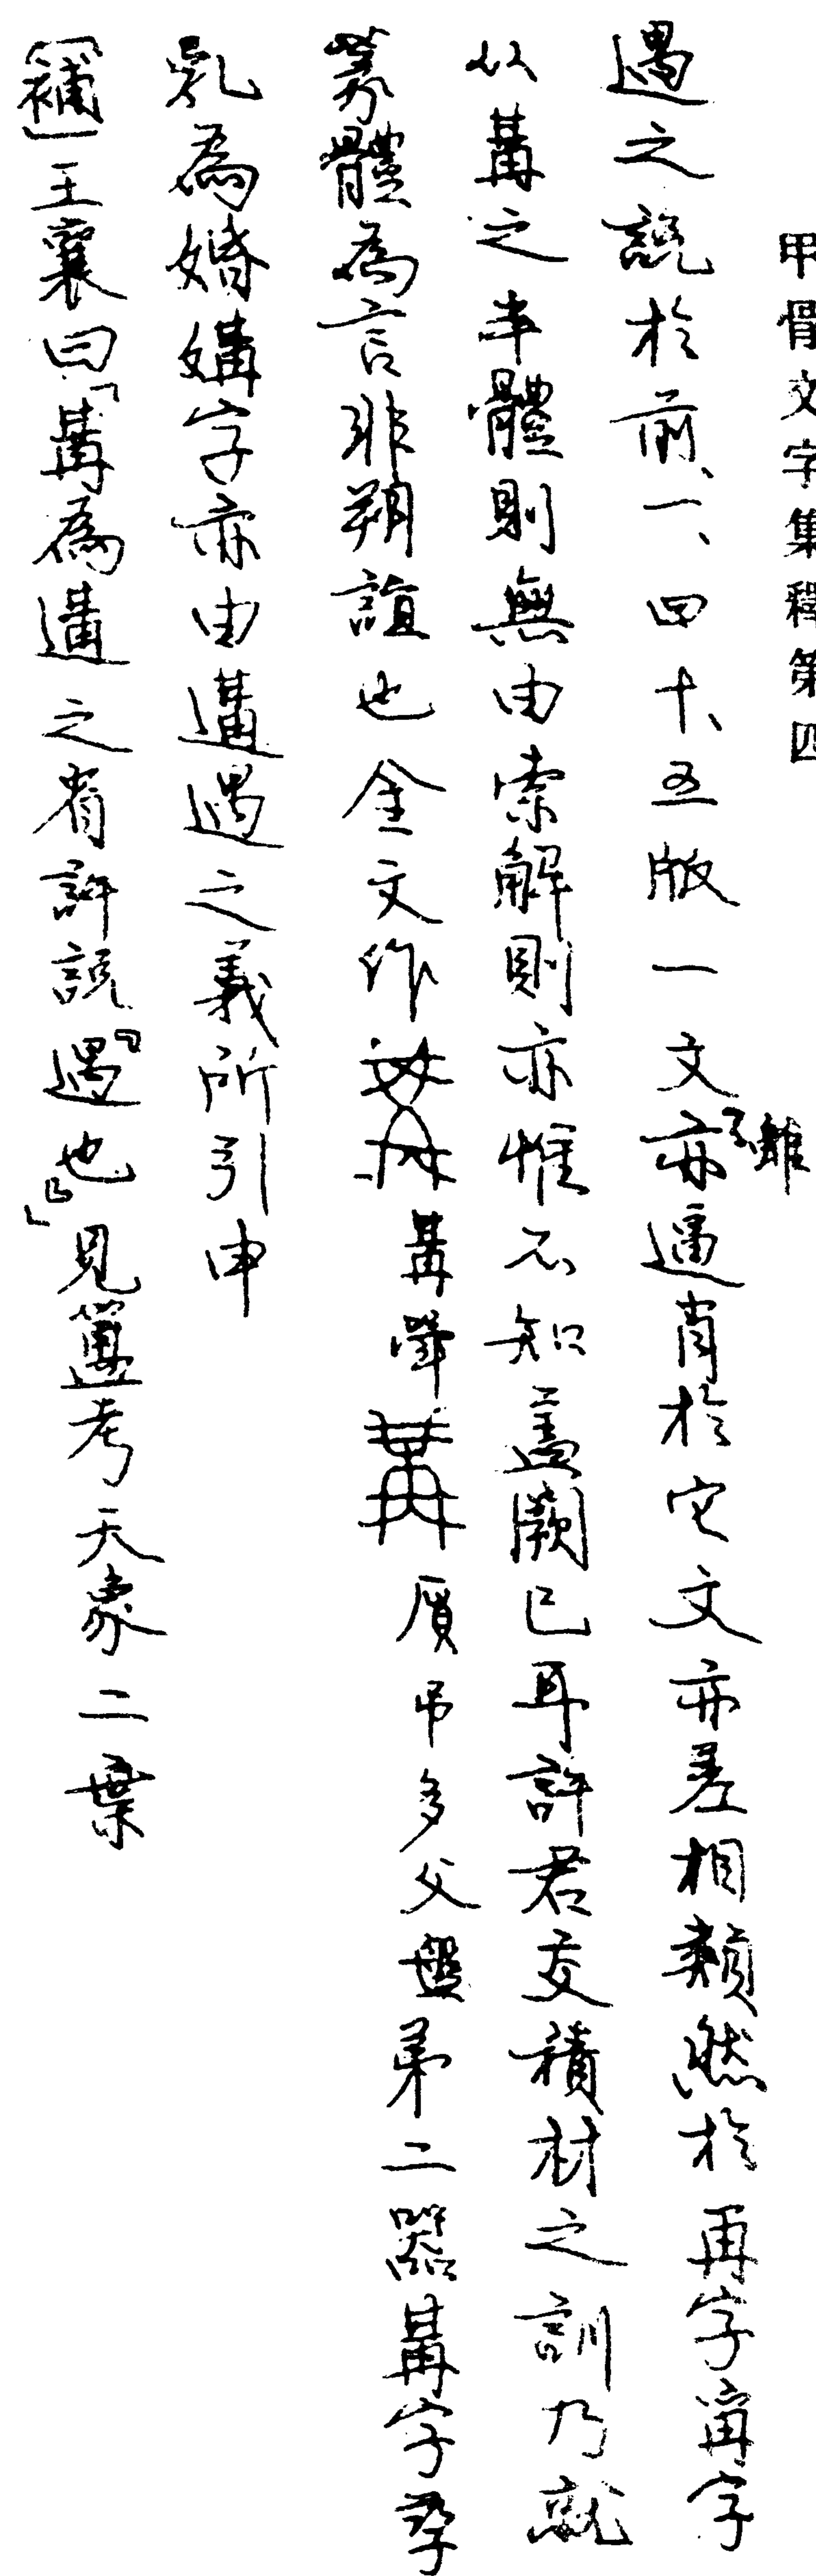 甲骨文字集釋第四
遇之說於前、一、四十、五版一文雖亦逼肖於它文亦差相類然於再字爯字
从冓之半體則無由索解則亦惟不知蓋闕已耳許君交積材之訓乃就
篆體為言非朔誼也金文作冓斝厧弔多父盤弟二器冓字孳
乳為婚媾字亦由遘遇之義所引申
〔補〕王襄曰「冓為遘之省許說『遇也』」見簠考天象二葉